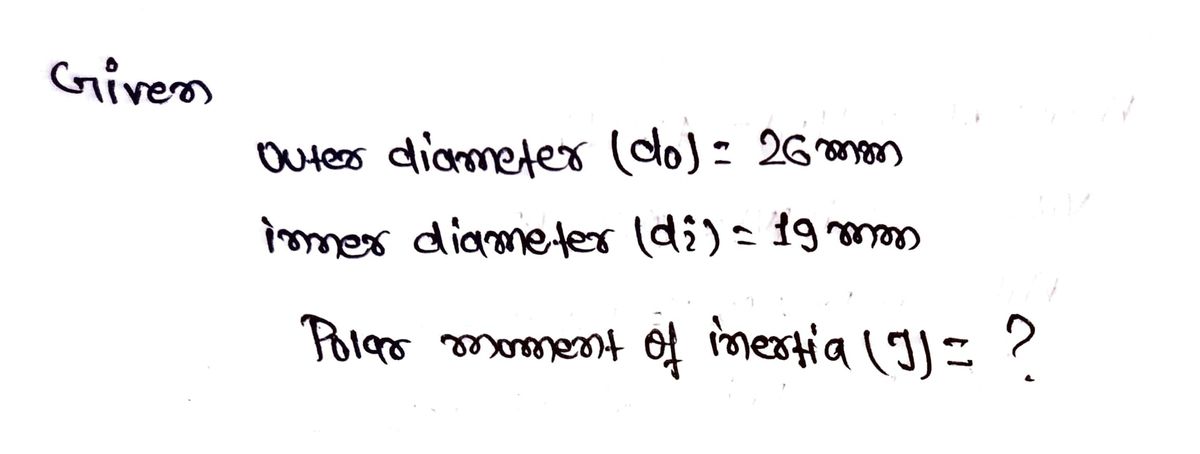 Given
outer diameter (do) = 26 mm
inner diameter (di) = 19 mm
Polar moment of inertia (J) = ?